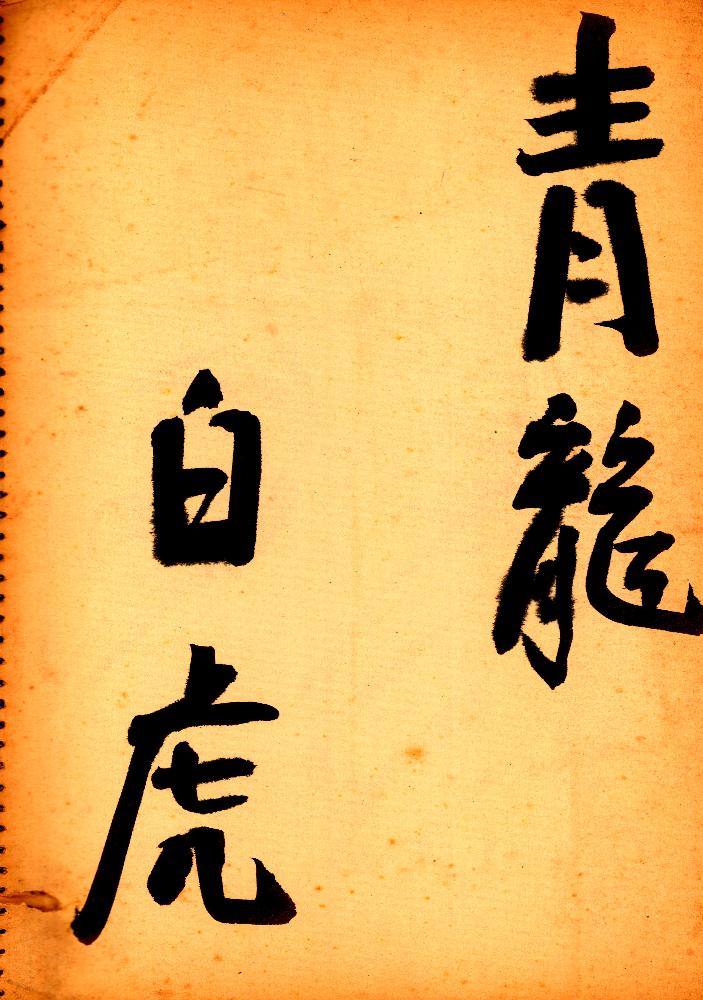 青龍
白虎